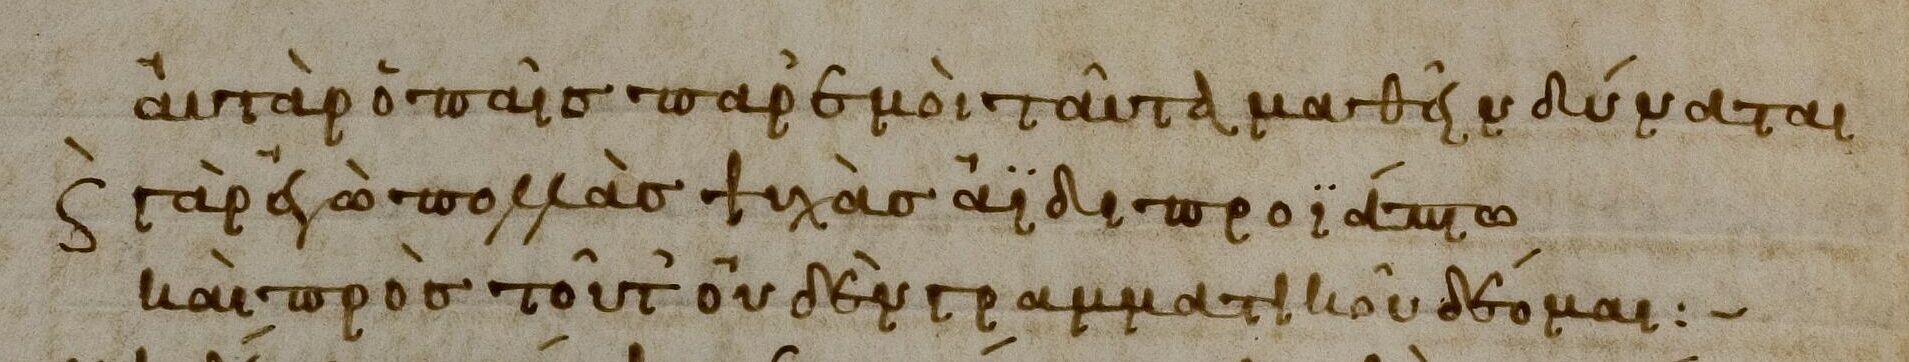 αὐτὰρ ὁ παῖς παρ' ἐμοὶ ταῦτα μαθεῖν δύναται
ϛ̀ γὰρ ἐγὼ πολλὰς ψυχὰς ἀϊδι προϊάπτω
καὶ πρὸς τοῦτ' οὐδὲν γραμματικοῦ δέομαι :~